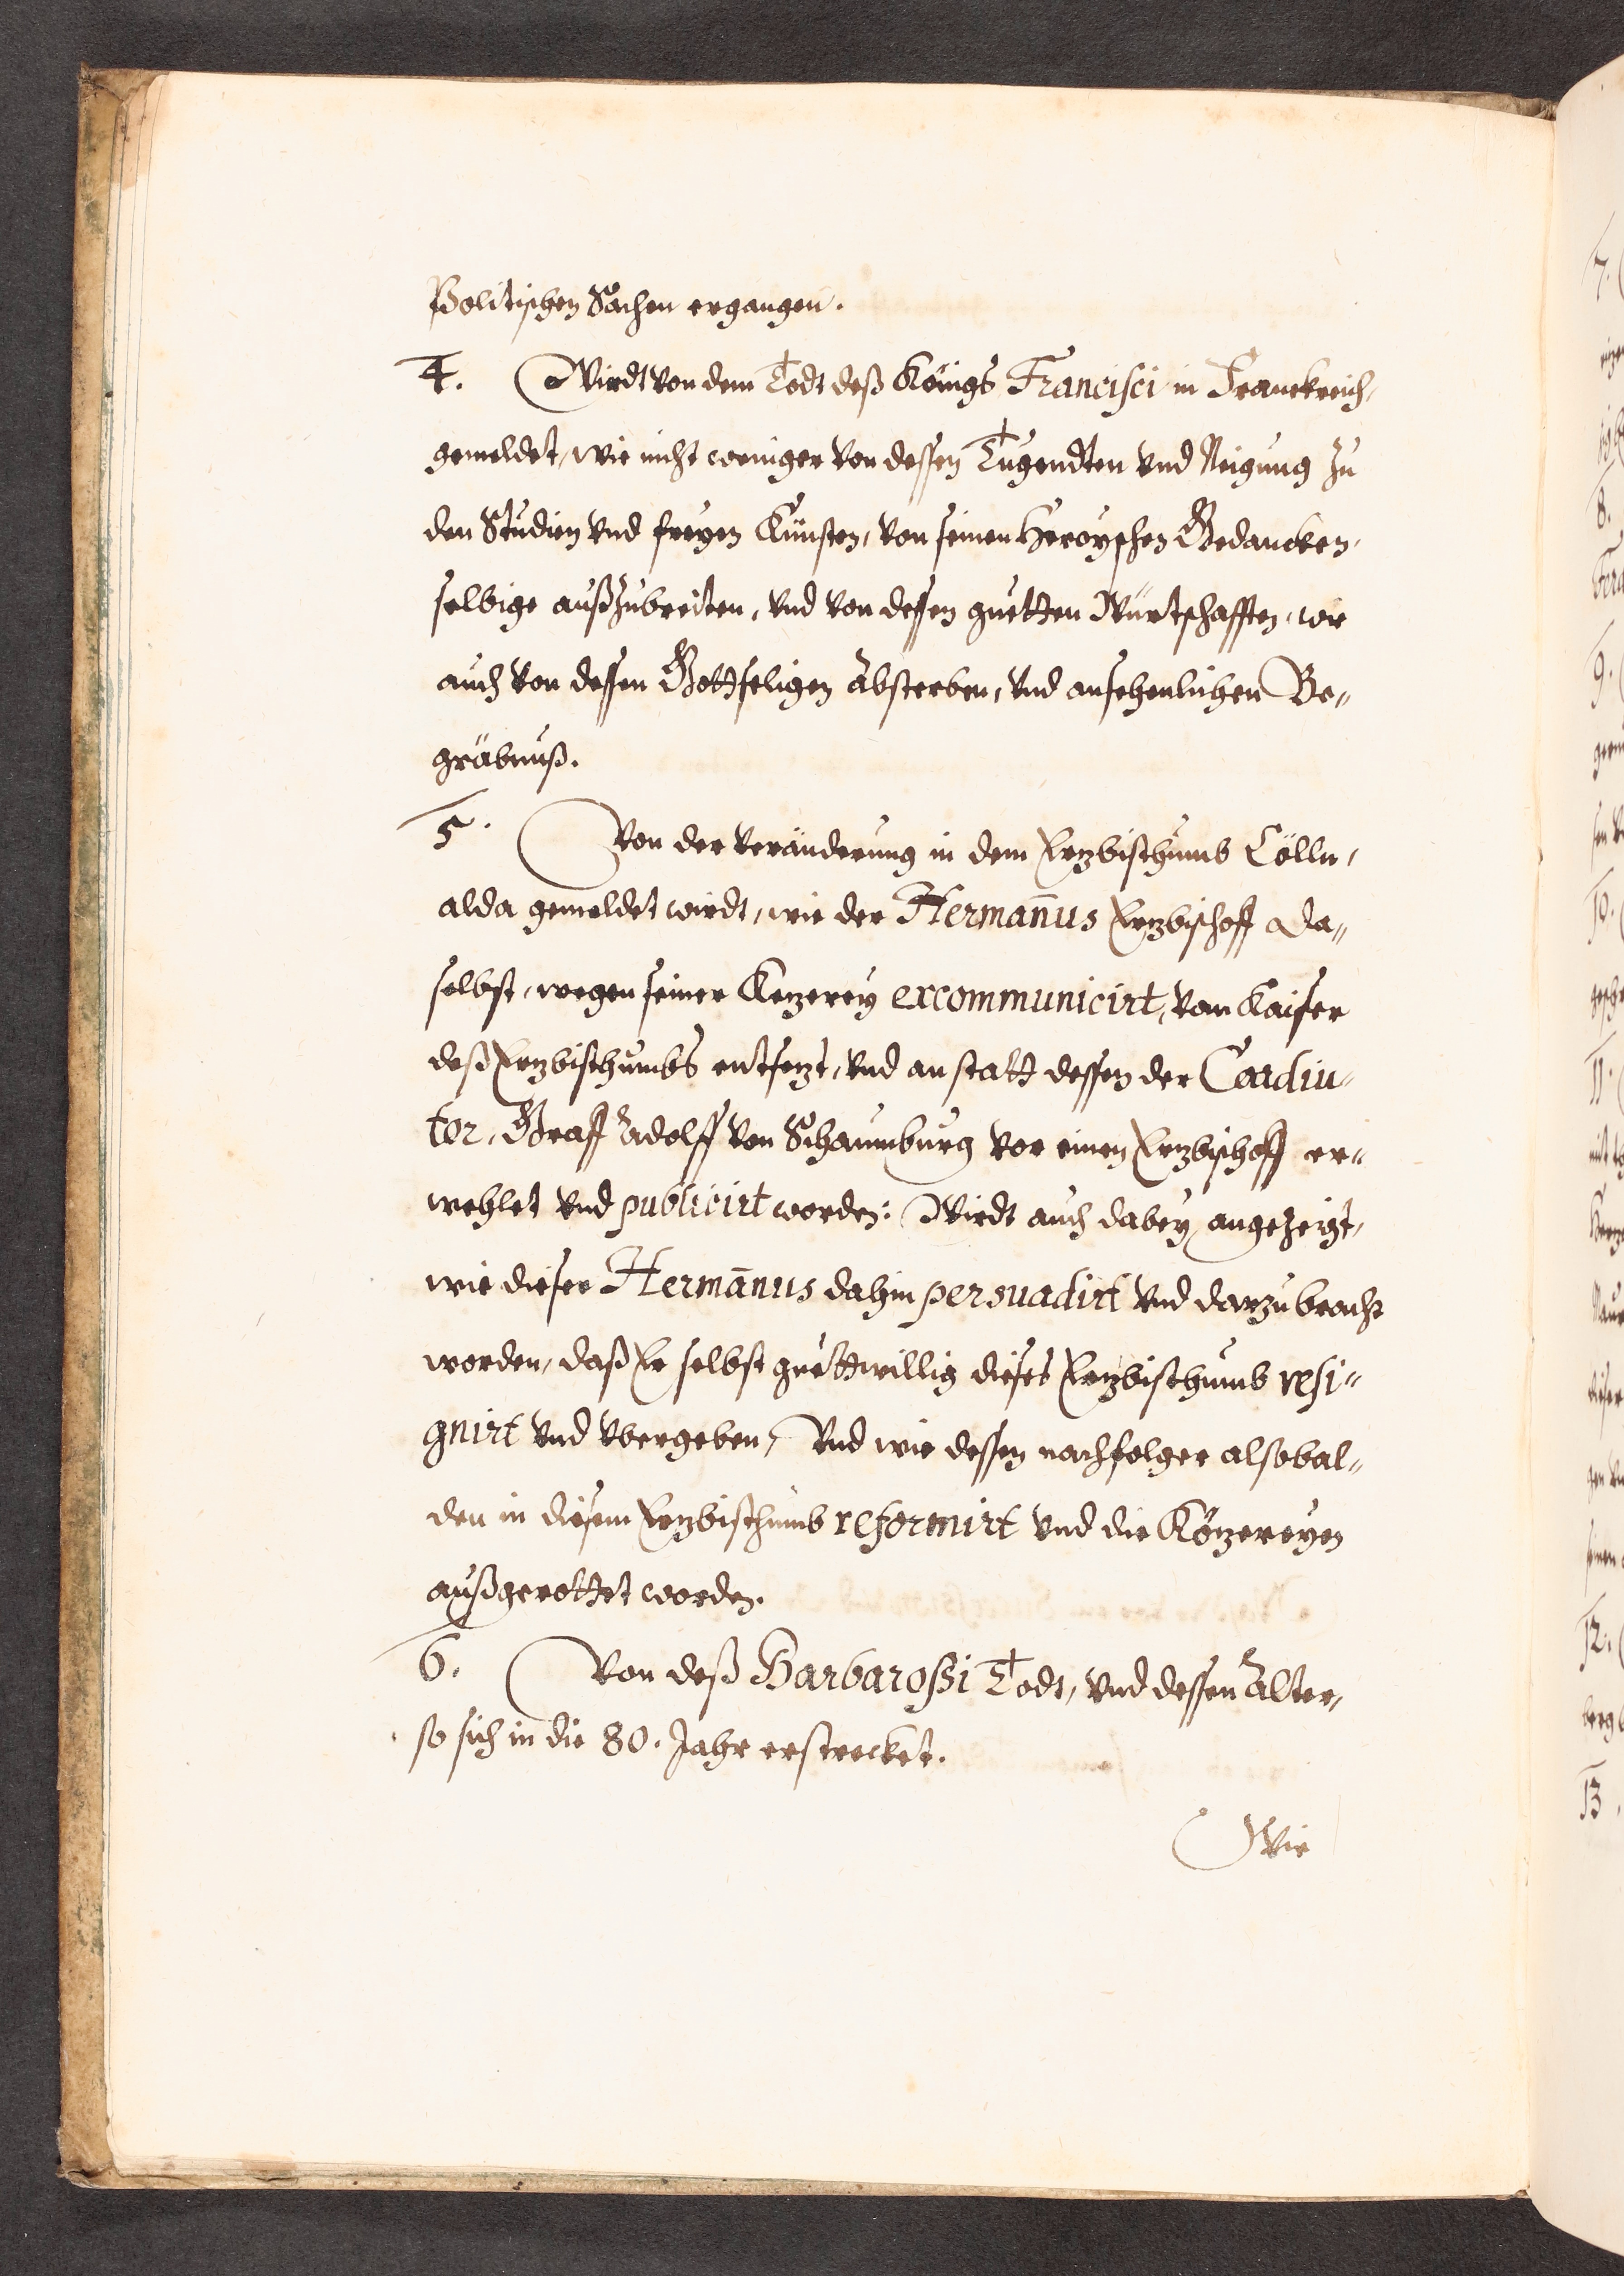 Politischen Sachen ergangen.
4. Wirdt von dem Todt deß Königs Francisci in Franckreich,
gemeldet, wie nicht weniger von dessen Tugendten vnd Neigung zu
den Studien vnd freyen Künsten, von seinen Heroyschen Gedancken,
selbige außzubreiten, vnd von dessen guetten Würtschafften, wie
auch von dessen Gottseligen Absterben, vnd ansehenlichen Be„
gräbnuß.
5. Von der veränderung in dem Erzbisthumb Cölln,
alda gemeldet wirdt, wie der Herman̄us Erzbischoff da„
selbst, wegen seiner Kezerey excommunicirt, vom Kaiser
deß Erzbisthumbs entsezt, vnd anstatt dessen der Coadiu„
tor, Graff Adolff von Schaumburg vor einen Erzbischoff er„
wehlet vnd publicirt worden: Wirdt auch dabey angezeigt,
wie dieser Herman̄us dahin persuadirt vnd darzu bracht
worden, daß Er selbst guettwillig dieses Erzbisthumb resi„
gnirt vnd vbergeben, Vnd wie dessen nachfolger alsobal„
den in diesem Erzbisthumb reformirt vnd die Közereyen
außgerottet worden.
6. Von deß Barbarossi Todt, vnd dessen Alter,
so sich in die 80. Jahr erstrecket.
Wie
7.
8.
9.
10.
11.
12.
13.